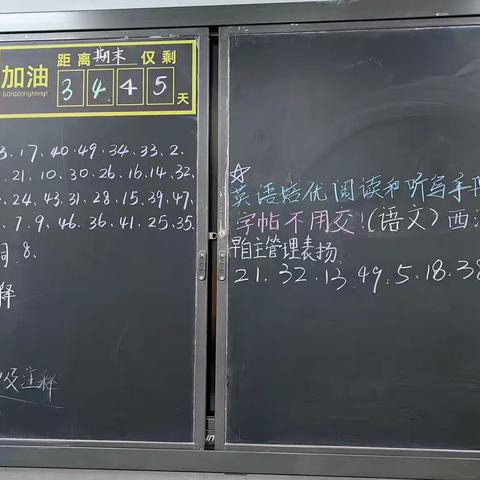 加油
GO!GO!Fighting!
距离期末仅剩
3 4 4 5 天
3、17、40、49、34、33、2、
21、10、30、26、16、14、32、
24、43、31、28、15、39、47、
7、9、46、36、41、25、35、
词 8、
释
及注释
☆
英语培优阅读和听写手
字帖不用交!(语文)西
早自主管理表扬
21、32、13、49、5、18、38